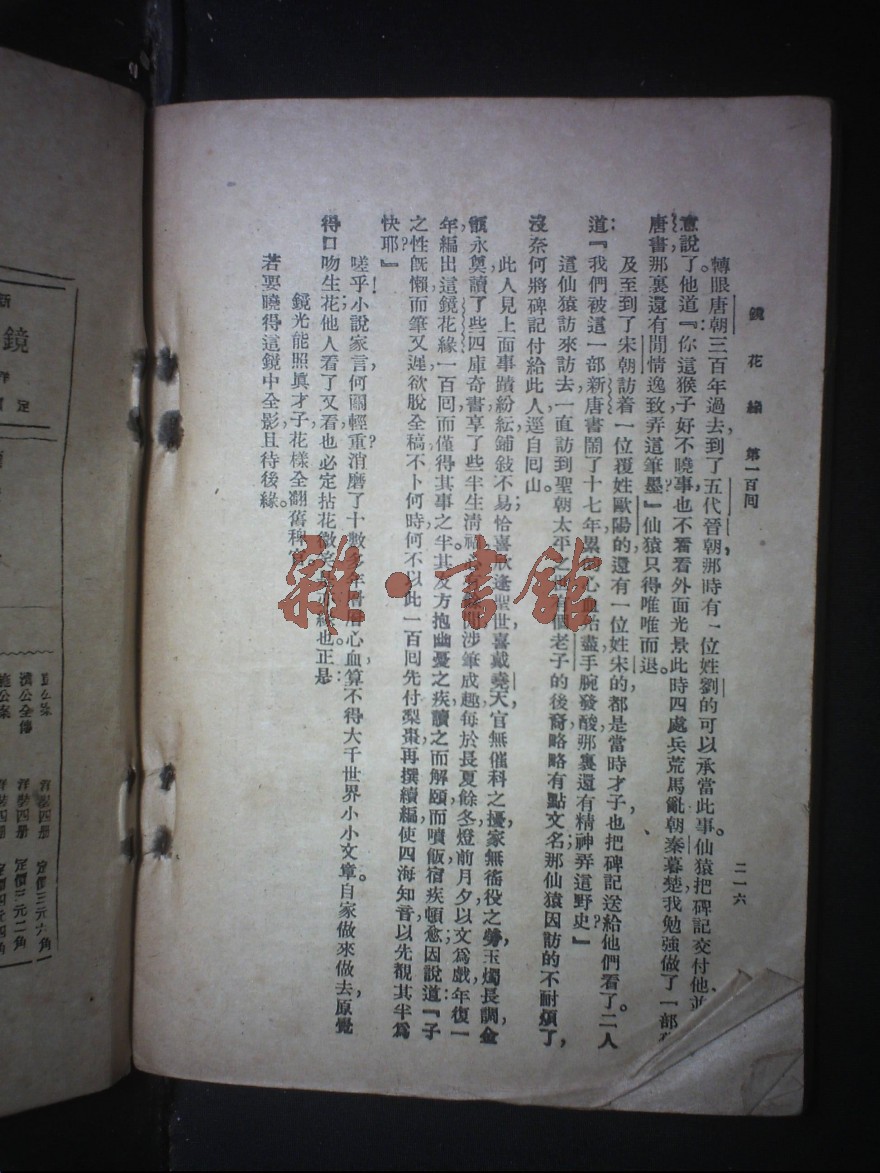 鏡花緣 第一百囘
二一六
轉眼唐朝三百年過去,到了五代晉朝,那時有一位姓劉的可以承當此事。仙猿把碑記交付他,並
意說了。他道『你這猴子好不曉事,也不看看外面光景,此時四處兵荒馬亂,朝秦暮楚,我勉強做了一部
唐書,那裏還有閒情逸致弄這筆墨』仙猿只得唯唯而退。
及至到了宋朝,訪着一位覆姓歐陽的,還有一位姓宋的,都是當時才子,也把碑記送給他們看了。二人
道:『我們被這一部新唐書鬧了十七年,累 心血 盡,手腕發酸,那裏還有精神弄這野史?』
這仙猿訪來訪去,一直訪到聖朝太平之 有個老子的後裔,略略有點文名;那仙猿因訪的不耐煩了,
沒奈何,將碑記付給此人,逕自囘山。
此人見上面事蹟紛紜,鋪敍不易,恰喜欣逢聖世,喜戴堯天,官無催科之擾,家無徭役之勞,玉燭長調,金
甌永奠,讀了些四庫奇書,享了些半生清 涉筆成趣,每於長夏餘冬,燈前月夕,以文爲戲,年復一
年,編出這鏡花緣一百囘,而僅得其事之半。其友方抱幽憂之疾,讀之而解頤,而噴飯,宿疾頓愈,因說道:『子
之性旣懶而筆又遲,欲脫全稿,不卜何時,何不以此一百囘先付梨棗,再撰續編,使四海知音以先覩其半爲
快耶?』
嗟乎!小說家言,何關輕重?消磨了十數多年 心血,算不得大千世界小小文章。自家做來做去,原覺
得口吻生花;他人看了又看,也必定拈花微笑: 也。正是:
鏡光能照眞才子,花樣全翻舊稗官。
若要曉得這鏡中全影,且待後緣。
鏡
濟公全傳 洋裝四册 定價三元二角
洋裝四册 定價三元六角